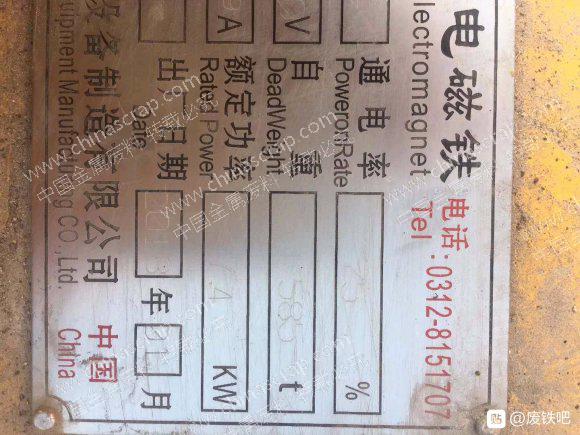 电磁铁
lectromagnet
电话:
Tel:0312-8151707
通电率 %
PoweronRate
V 自重 t
DeadWeight
A 额定功率 KW
Rated Power
出厂日期 年 月
Date
设备制造有限公司 中国
uipment Manufacturing CO.,Ltd. China
www.chinascrap.com
中国金属废料 转载必究
贴 @废铁吧